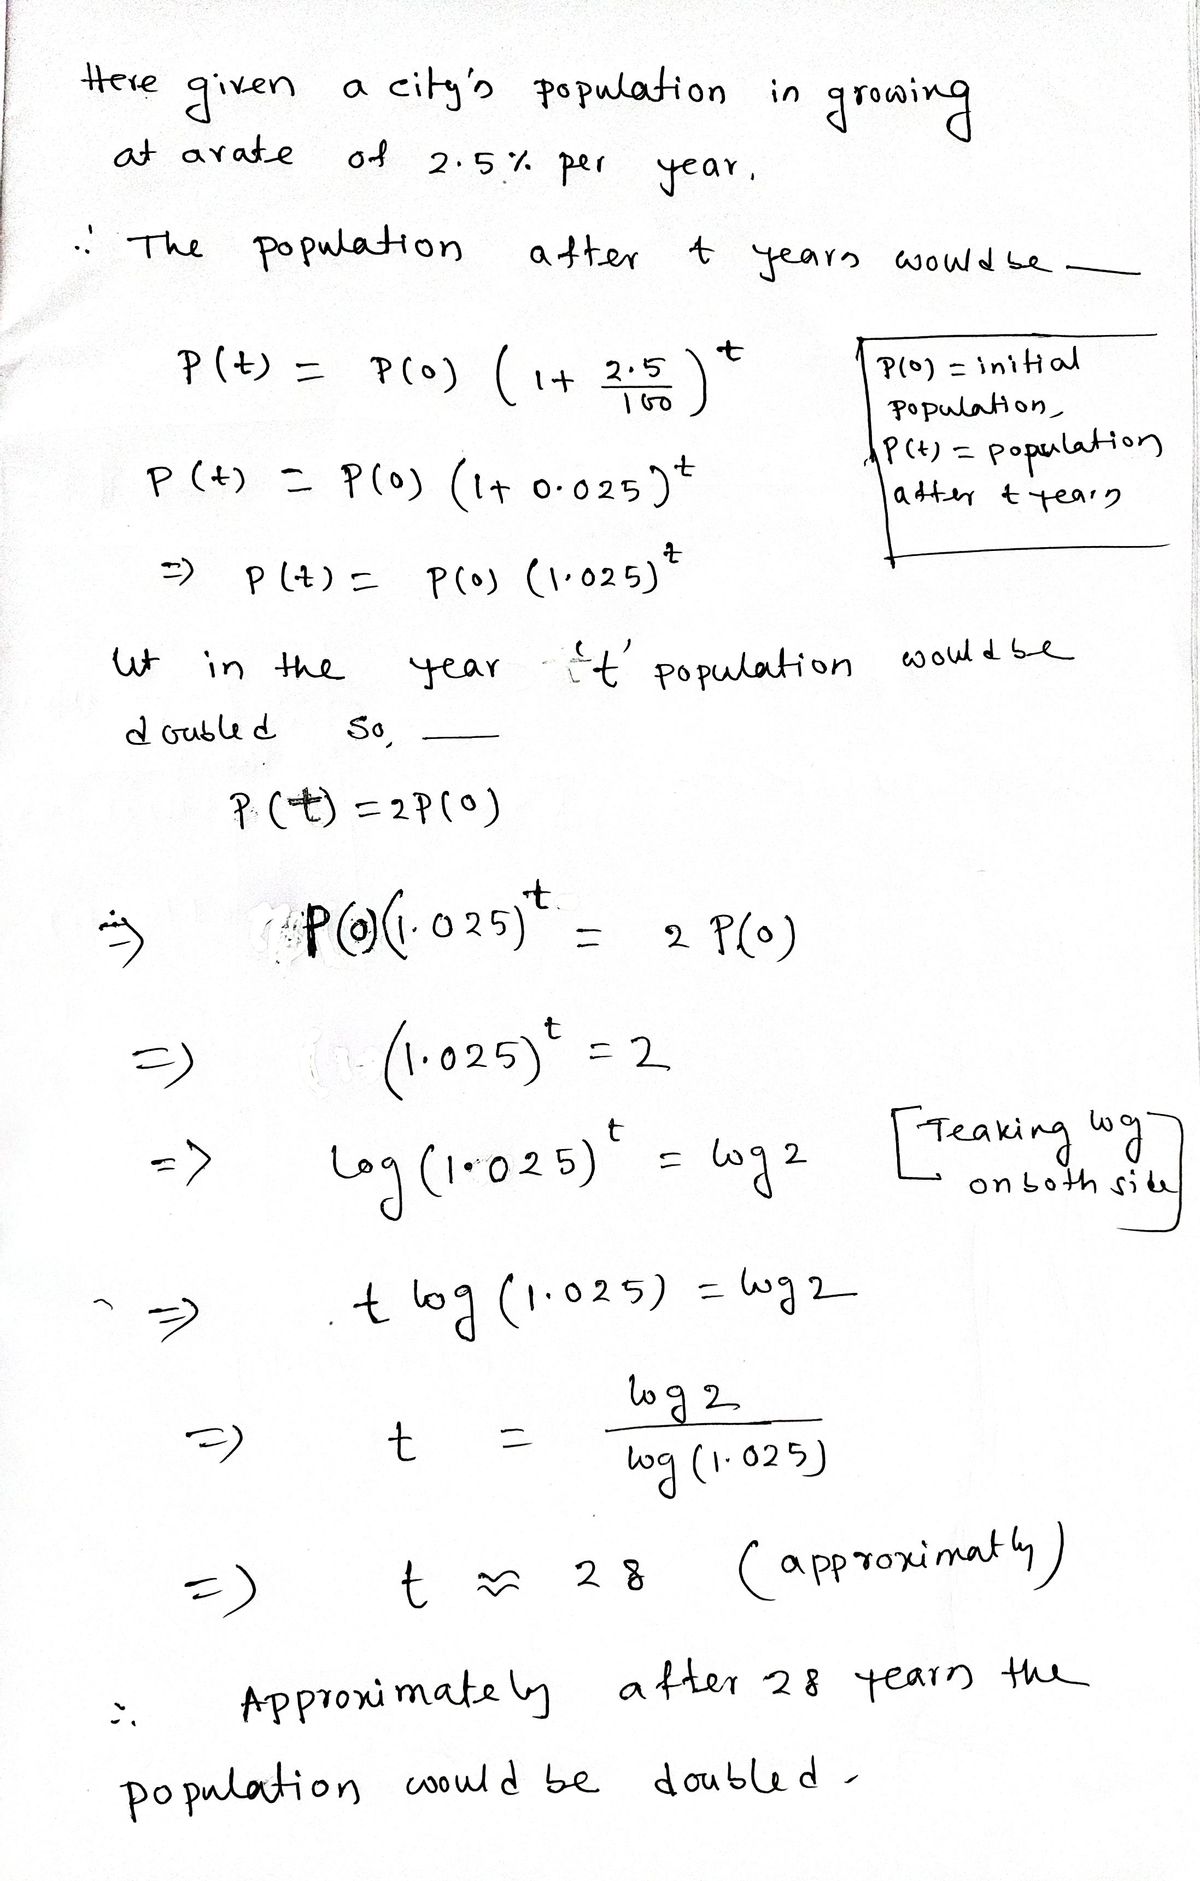 Here given a city's population in growing
at a rate of 2.5% per year.
∴ The population after t years would be —
P(t) = P(0) (1+ 2.5/100)^t
P(0) = initial
population,
P(t) = population
after t years
P(t) = P(0) (1+ 0.025)^t
=> P(t) = P(0) (1.025)^t
let in the year 't' population would be
doubled so, —
P(t) = 2P(0)
=> P(0)(1.025)^t = 2 P(0)
=> (1.025)^t = 2
=> log(1.025)^t = log 2
[Teaking log
on both side]
=> t log (1.025) = log 2
=> t = log 2 / log (1.025)
=> t ≈ 28 (approximatly)
∴ Approximately after 28 years the
population would be doubled.